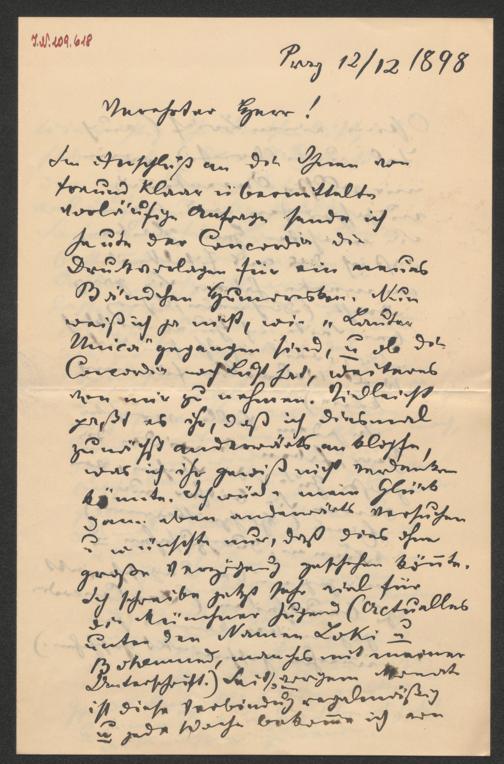 J.N. 109.618
Prag 12/12 1898
Verehrter Herr!
Im Anschluß an die Ihnen von
Freund Klaar übermittelte
vorläufige Anfrage sende ich
heute der Concordia die
Druckvorlagen für ein neues
Bändchen Humoresken. Nun
weiß ich ja nicht, wie "Lauter
Unica" gegangen sind, u ob die
Concordia noch Lust hat, weiteres
von mir zu nehmen. Vielleicht
paßt es ihr, daß ich diesmal
zunächst anderwärts anklopfe,
was ich ihr gewiß nicht verdenken
könnte. Ich würde mein Glück
dann eben anderwärts versuchen
u wünschte nur, daß dies ohne
große Verzögerung geschehen könnte.
Ich schreibe jetzt sehr viel für
die Münchner Jugend (Actuelles
unter den Namen Loki u
Bohemund, manches mit meiner
Unterschrift.) Seit vorigem Monate
ist diese Verbindung regelmäßig
u jede Woche bekomme ich von